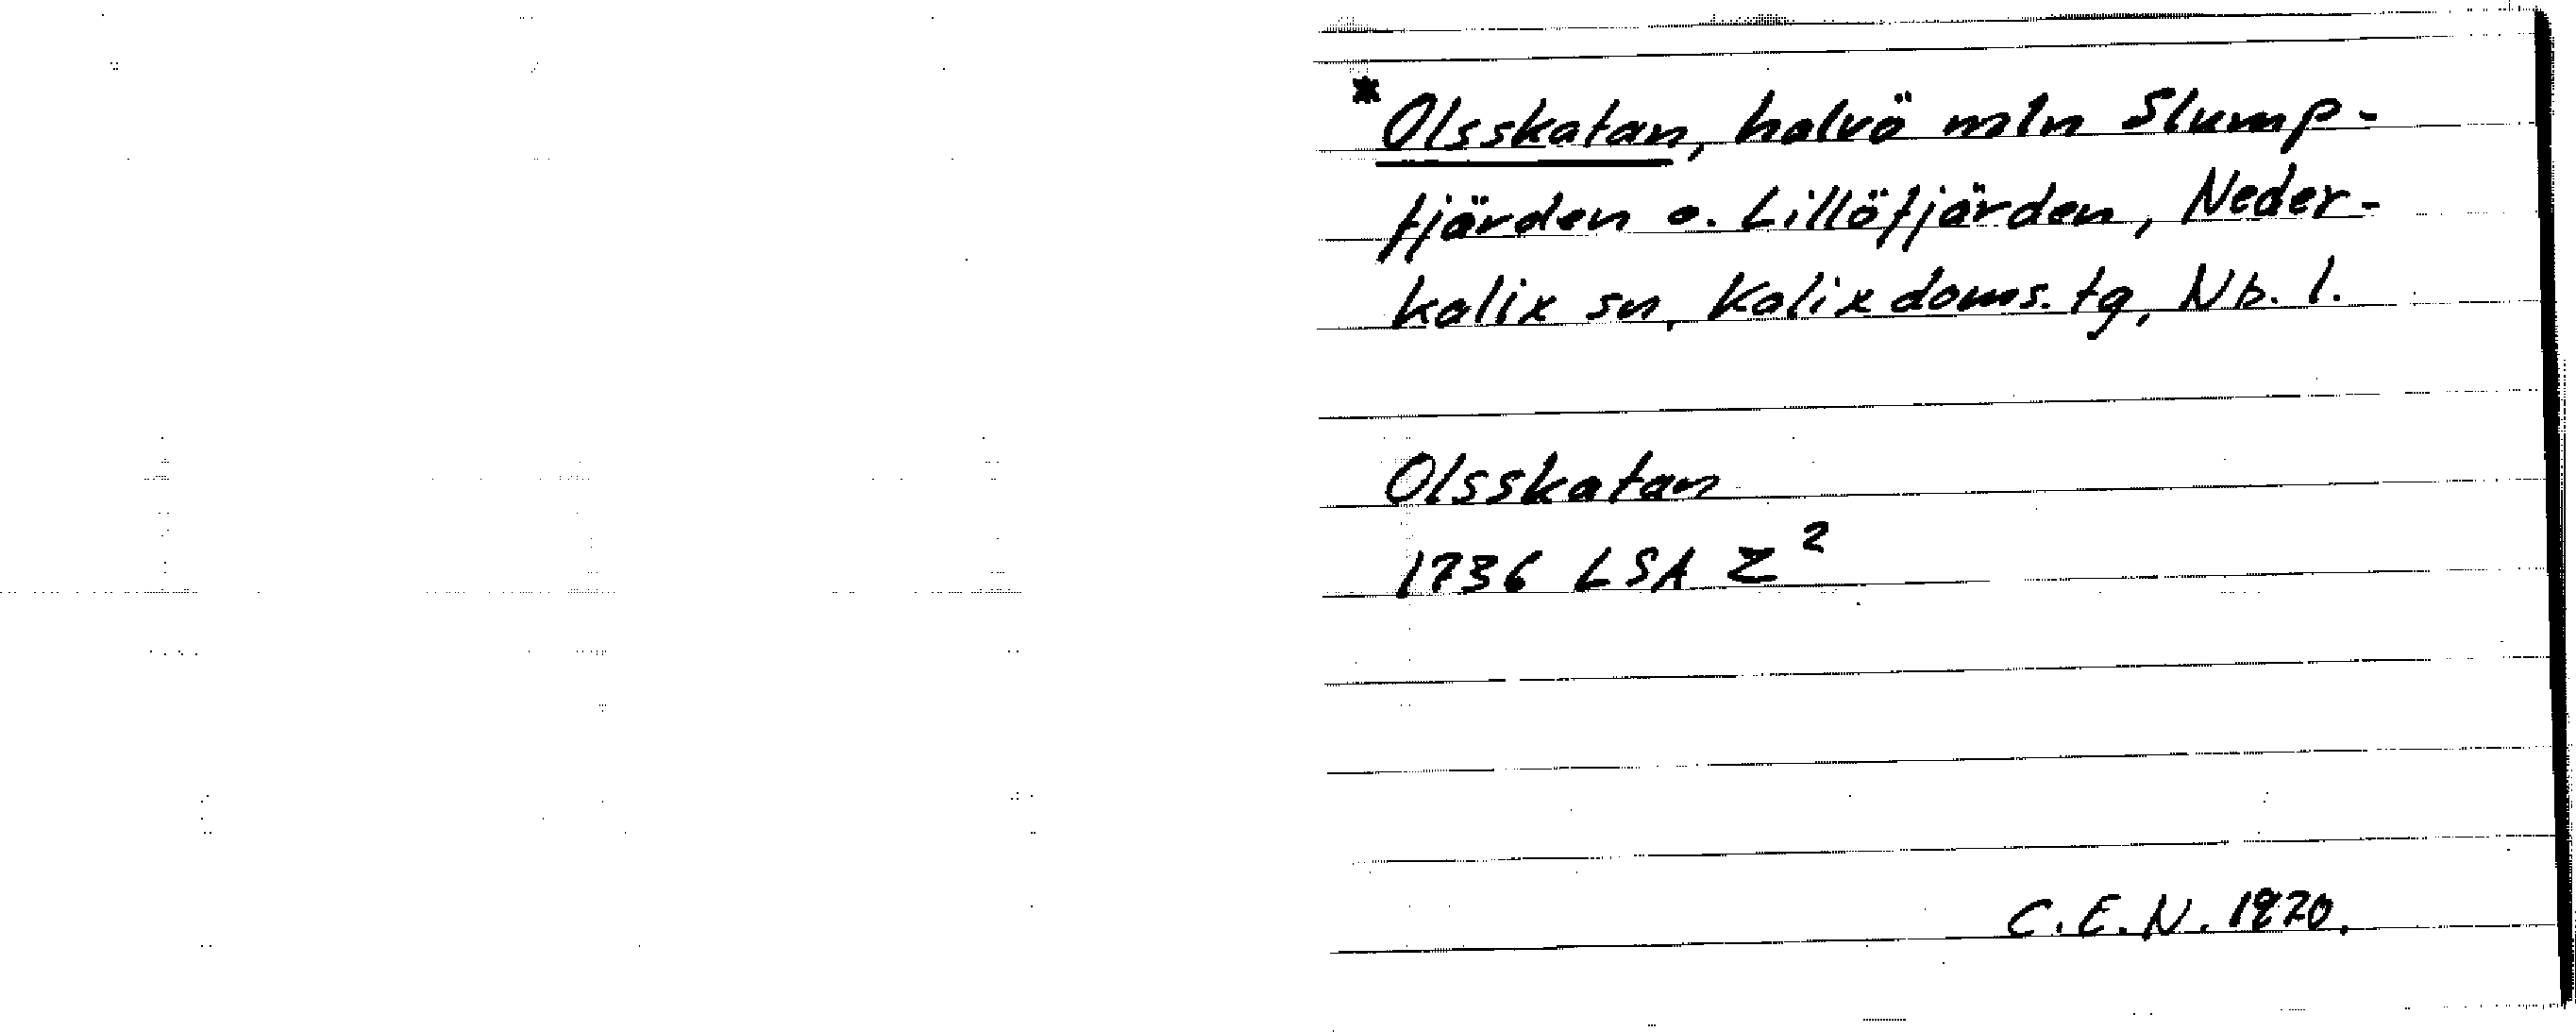 * Olsskatan, halvö mln Slump-
fjärden o. Lillöfjärden, Neder-
kalix sn, Kalix doms. tg, Nb. l.
Olsskatan
1736 LSA Z²
C.E.N. 1970.